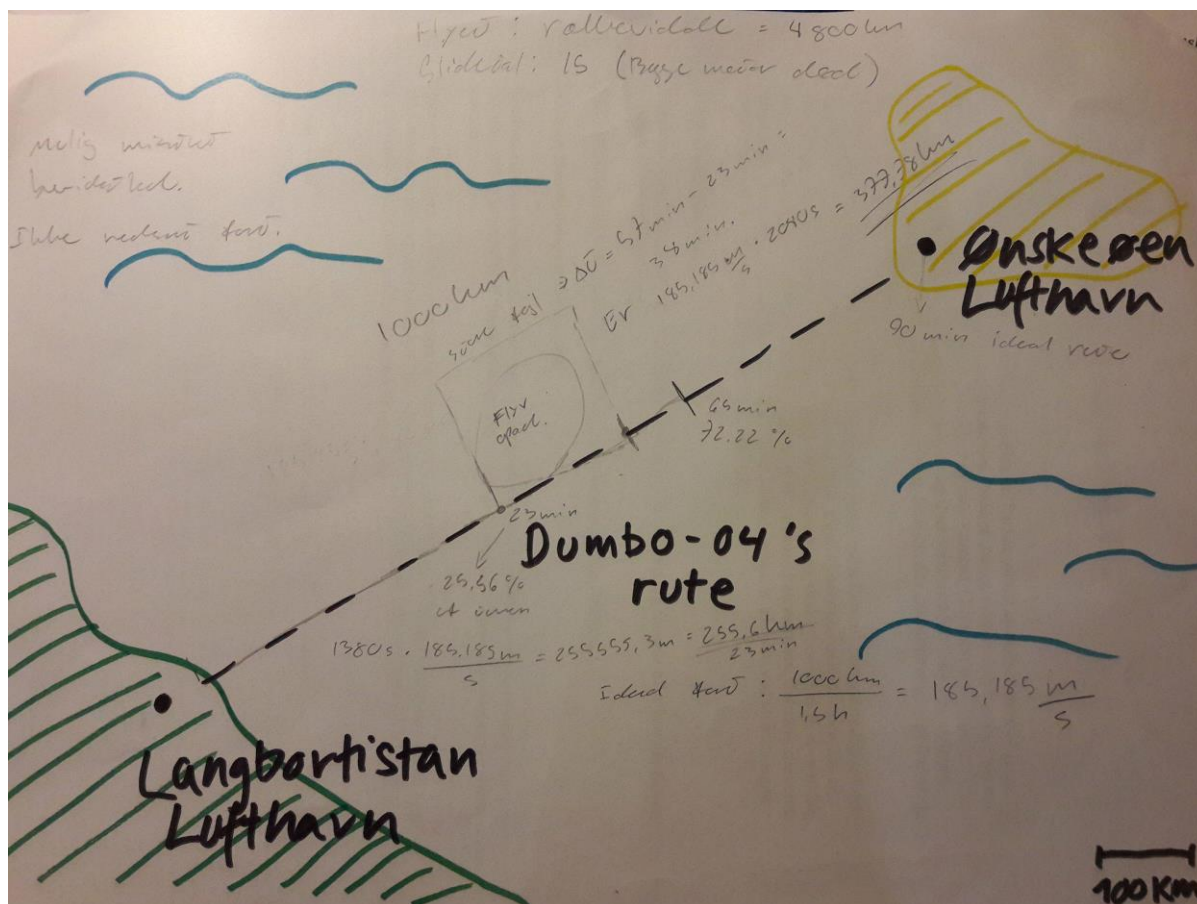 Flyet: rækkevidde = 4800 km
Glidetal: 15 (Begge motor død)
Ikke nedsat fart.
1000 km
=> Δt = 57 min - 23 min =
34 min.
Er 185,185 m/s · 2040s = 377,78 km
Ønskeøen
Lufthavn
90 min ideal rute
Flyv
65 min
72.22 %
23 min
25,56 %
af
Dumbo-04's
rute
1380s · 185,185 m/s = 255555,3 m = 255,6 km/23 min
Ideal fart: 1000 km/1,5h = 185,185 m/s
Langbortistan
Lufthavn
100 Km